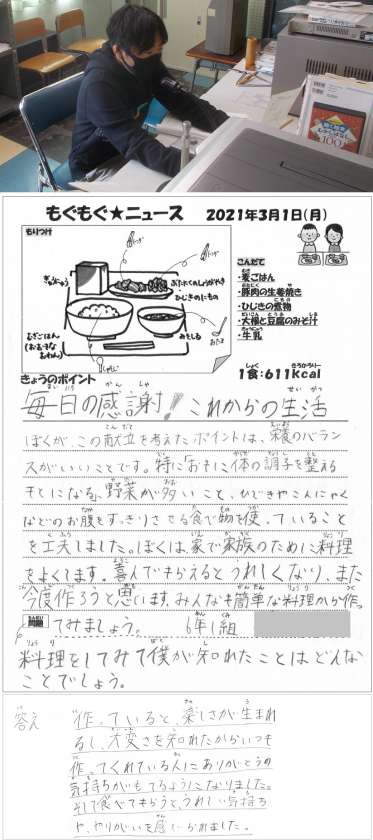 もぐもぐ★ニュース 2021年3月1日(月)
もりつけ
ぎゅうにゅう
ぶたにくのしょうがやき
ひじきのにもの
むぎごはん
みそしる
おたま
しゃもじ
こんだて
・麦ごはん
・豚肉の生姜焼き
・ひじきの煮物
・大根と豆腐のみそ汁
・牛乳
きょうのポイント
1食:611kcal
毎日の感謝! これからの生活
ぼくが、この献立を考えたポイントは、栄養のバラン
スがいいことです。特に「おもに体の調子を整える
もとになる」野菜が多いこと、ひじきやこんにゃく
などのお腹をすっきりさせる食べ物を使っていること
を工夫しました。ぼくは、家で家族のために料理
をよくします。喜んでもらえるとうれしくなり、また
今度作ろうと思います。みんなも簡単な料理から作っ
てみましょう。 6年1組
料理をしてみて僕が知れたことは、どんな
ことでしょう。
答え
"作っていると、楽しさが生まれ
るし、大変さを知れたからいつも
作ってくれている人にありがとうの
気持ちがもてるようになりました。
そして食べてもらうと、うれしい気持ち
や、やりがいを感じられました。